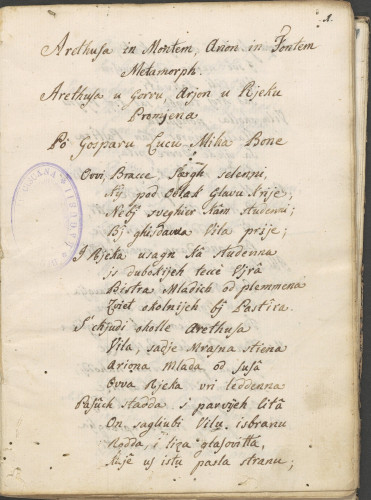 1.
Arethusa in Montem Arion in Fontem
Metamorph.
Arethusa u Gorru, Arjon u Rjeku
Promjena
Po Gosparu Luciu Miha Bone
Ovvi, Brace selenni,
pod Oblak Glavu krije,
Nebj sveghier Kam studeni;
Bj ghisdawa Vila prije;
I Rjeka usagn Ka studenna
is dubokijeh tecê Vjrâ
Bistra Mladich od plemmena
Zvjet okolnijeh bj Pastira.
okolle Arethusa
Vila, sadje Mrasna stiena
Ariona Mlada od susâ
Ovva Rjeka vri leddenna
Pasùch stadda s parvijeh litâ
On sagliubi Vilu isbranu
Rodda, i liza glasovitta,
Kuje us istu pasla stranu;